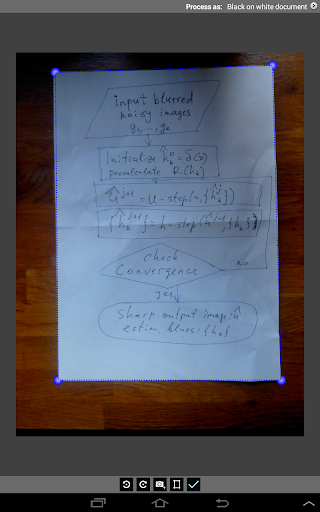 Process as: Black on white document
input blurred
noisy images
Initialize ĥₖ⁰ = δ(x)
precalculate R(hₖ)
û^{j+1} = u - step(
{ĥₖ^{j+1}} = h - step(
check
Convergence
No
yes
Sharp output image: û
estim. blurs: